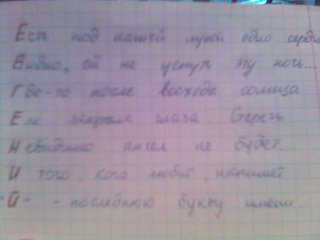 Есть под нашей луной одно сердце
Видно, ей не уснуть эту ночь...
Где-то после восхода солнца
Ели закрыла глаза. Стеречь
Невидимо ангел не будет.
И того, кого любит, напишет
Й - последнюю букву имени.